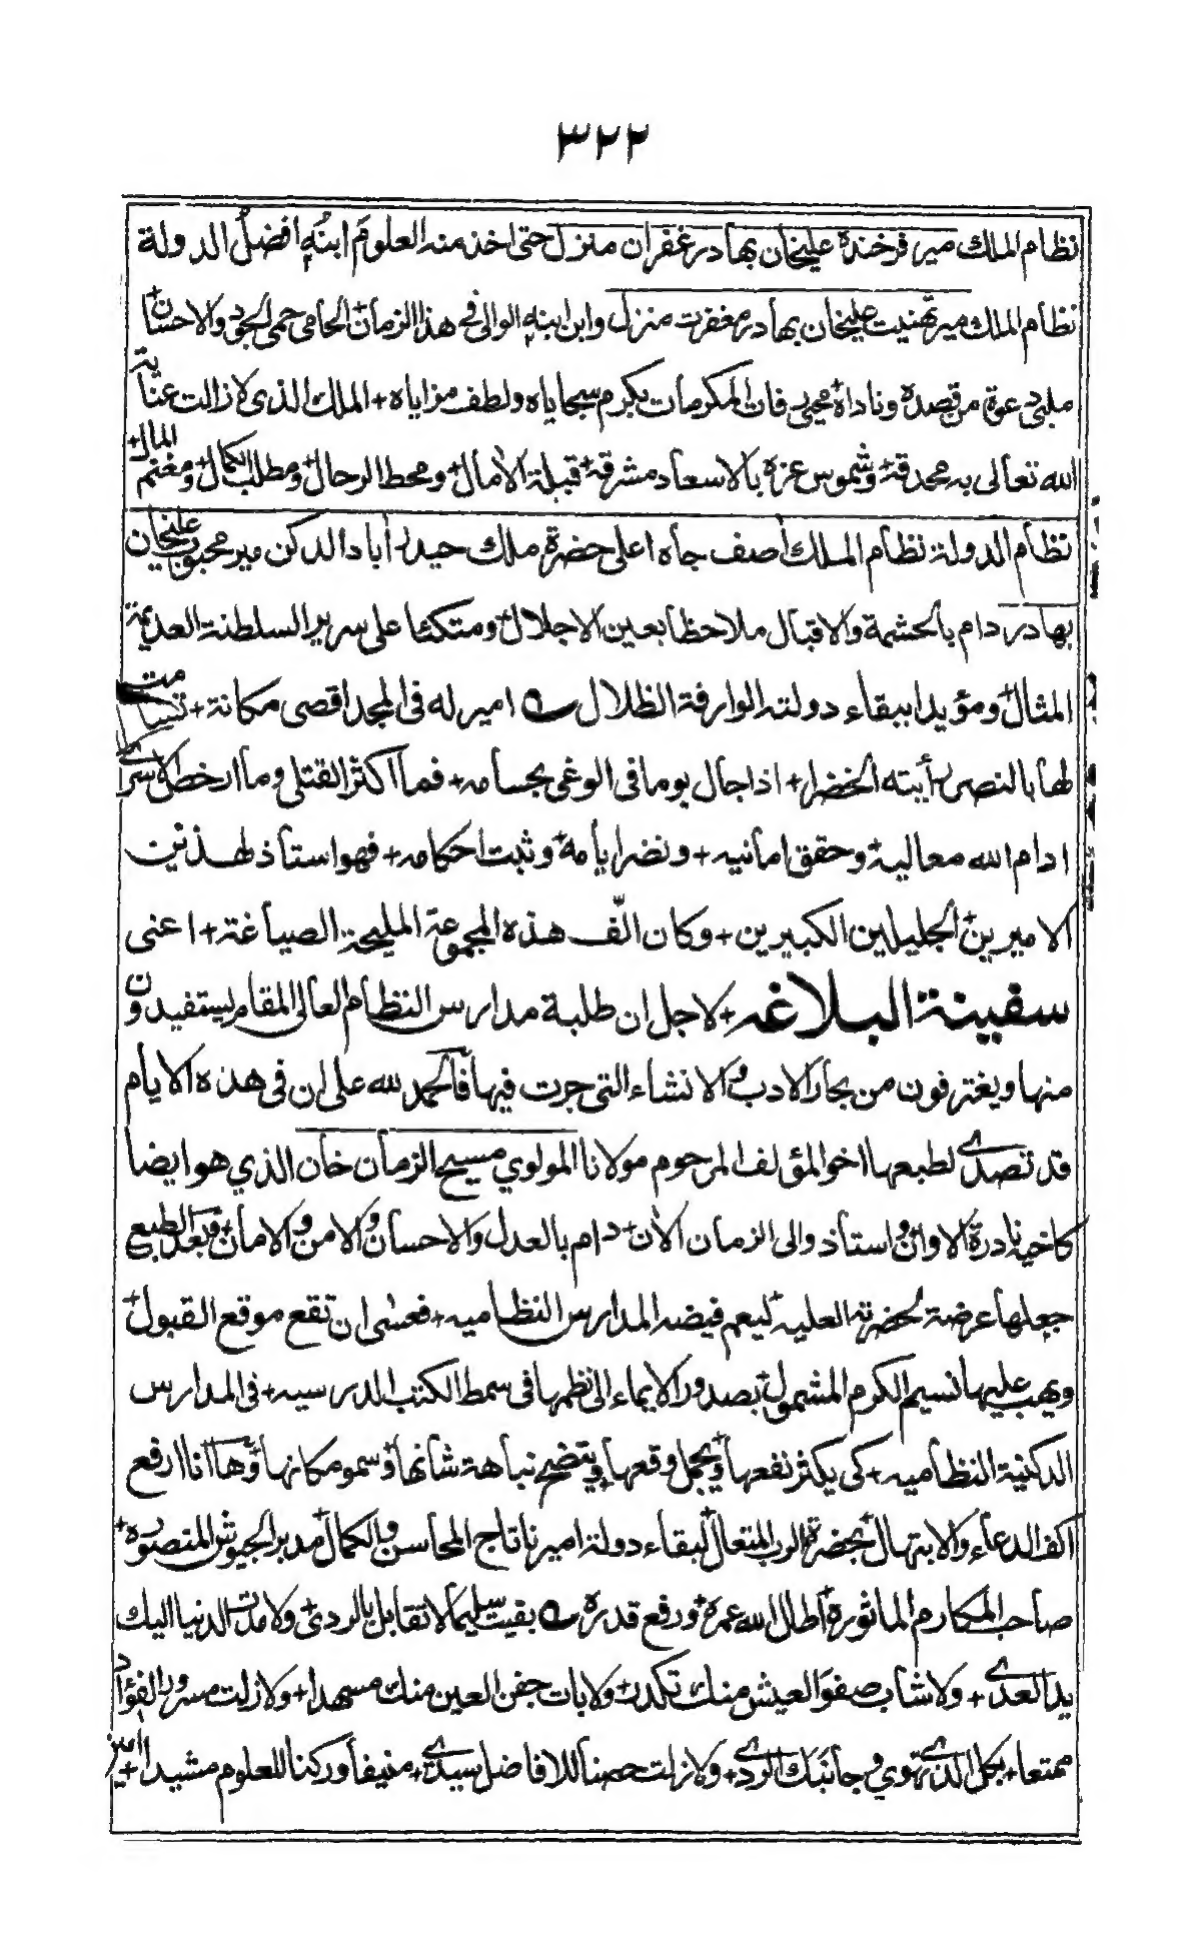 ٣٢٢
نظام الملك مير فرخندة عليخان بهادر غفران منزل حتى اخذ منه العلومَ ابنُهٖ افضلُ الدولة
نظام الملك مير تهنيت عليخان بهادر مغفرت منزل وابن ابنهٖ الوالى فى هذا الزمان + الحامى حمى الجود والاحسان +
ملبى دعوة من قصده وناداه + محيى رفات المكرمات بكرم سجاياه ولطف مزاياه + الملك الذى لازالت عناية
الله تعالى به محدقة + وشموس عزه بالاسعاد مشرقة + قبلة الأمال + ومحط الرحال + ومطلب الكمال + ومغنم المال +
نظام الدولة نظام الملك أصف جاه اعلى حضرة ملك حيدر أباد الدكن مير محبوب عليخان
بهادر دام بالحشمة والاقبال ملاحظا بعين الاجلال + ومتكئا على سرير السلطنة العديمة
المثال + ومؤيدا ببقاء دولته الوارفة الظلال امير له فى المجد اقصى مكانة + تسامت
لها بالنصر رأيته الخضرا + اذا جال يوما فى الوغى بحسامه + فما اكثر القتلى وما ارخص الاسرىٰ
ادام الله معاليه + وحقق امانيه + ونضر ايامه + وثبت احكامه + فهو استاذ لهذين
الاميرين + الجليلين الكبيرين + وكان الّف هذه المجموعة المليحة الصياغة + اعنى
سفينة البلاغه + لاجل ان طلبة مدارس النظام العالى المقام يستفيدون
منها ويغترفون من بحار الادب والانشاء التى جرت فيها فالحمد لله على ان فى هذه الايام
قد تصدىٰ لطبعها اخو المؤلف المرحوم مولانا المولوي مسيح الزمان خان الذي هو ايضا
كاخيه نادرة الاوان واستاذ والى الزمان الأن + دام بالعدل والاحسان والامن والامان + وبعد الطبع
جعلها عرضة لحضرته العلية + ليعم فيضه المدارس النظاميه + فعسٰى ان تقع موقع القبول +
ويهب عليها نسيم الكرم المشمول + بصدور الايماء الى نظمها فى سمط الكتب الدرسيه + فى المدارس
الدكنية النظاميه + كى يكثر نفعها + ويجمل وقعها + ويتضح نباهة شأنها + وسمو مكانها + وها انا ارفع
اكف الدعاء والابتهال + بحضرة الرب المتعال + لبقاء دولة اميرنا تاج المحاسن والكمال + مدبر الجيوش المنصوره +
صاحب المكارم الماثوره + اطال الله عمره + ورفع قدره بقيت سليما لا تقابل بالردىٰ + ولا مدت الدنيا اليك
يدا لعدىٰ + ولا شاب صفوَ العيش منك تكدر + ولا بات جفن العين منك مسهدا + ولا زلت مسرور الفؤاد
ممتعا + بكل الذىٰ تهوي وجانَبَك الردىٰ + ولا زلت حصنا للافاضل سيدىٰ + منيفا وركنا للعلوم مشيدا + اٰمين +